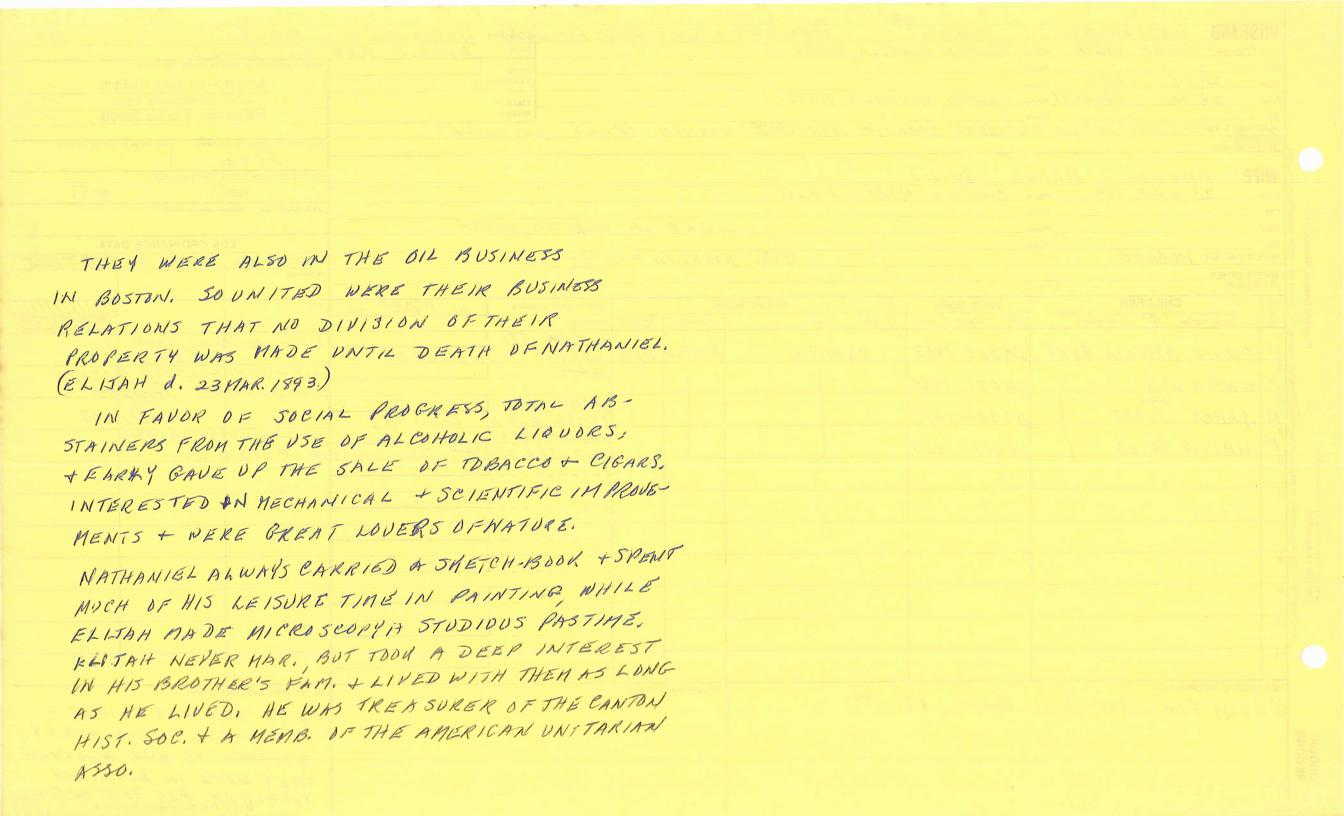 THEY WERE ALSO IN THE OIL BUSINESS
IN BOSTON. SO UNITED WERE THEIR BUSINESS
RELATIONS THAT NO DIVISION OF THEIR
PROPERTY WAS MADE UNTIL DEATH OF NATHANIEL.
(ELIJAH d. 23 MAR. 1893.)
IN FAVOR OF SOCIAL PROGRESS, TOTAL AB-
STAINERS FROM THE USE OF ALCOHOLIC LIQUORS,
+ EARLY GAVE UP THE SALE OF TOBACCO + CIGARS.
INTERESTED IN MECHANICAL + SCIENTIFIC IMPROVE-
MENTS + WERE GREAT LOVERS OF NATURE.
NATHANIEL ALWAYS CARRIED A SKETCH-BOOK + SPENT
MUCH OF HIS LEISURE TIME IN PAINTING, WHILE
ELIJAH MADE MICROSCOPY A STUDIOUS PASTIME.
ELIJAH NEVER MAR., BUT TOOK A DEEP INTEREST
IN HIS BROTHER'S FAM. + LIVED WITH THEM AS LONG
AS HE LIVED. HE WAS TREASURER OF THE CANTON
HIST. SOC. + A MEMB. OF THE AMERICAN UNITARIAN
ASSO.